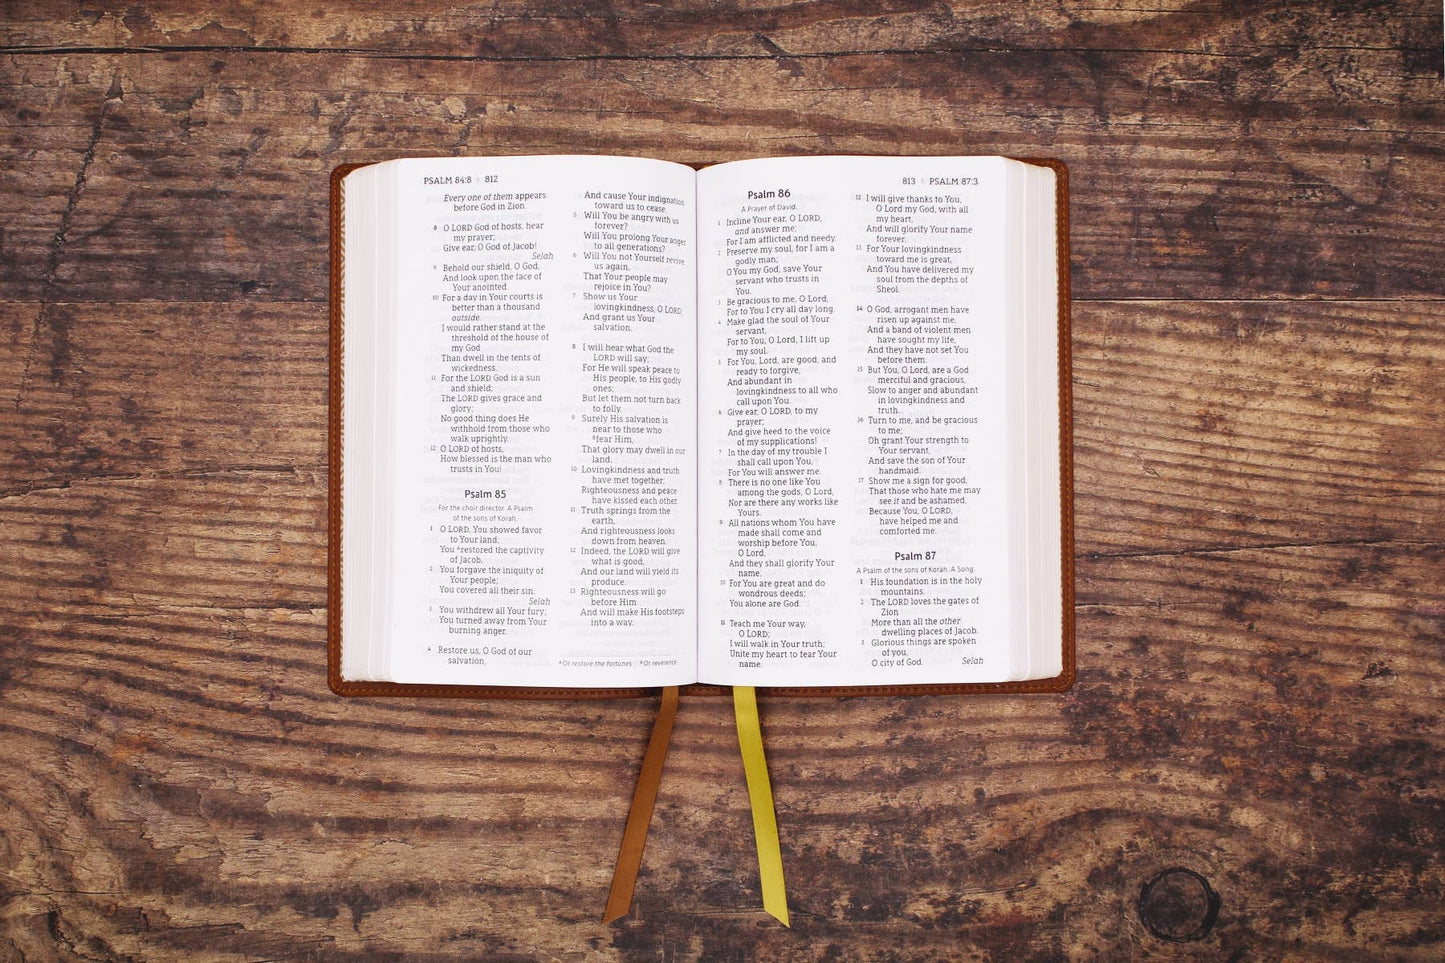 PSALM 84:8 812
Every one of them appears
before God in Zion.
8 O LORD God of hosts, hear
my prayer;
Give ear, O God of Jacob!
Selah
9 Behold our shield, O God,
And look upon the face of
Your anointed.
10 For a day in Your courts is
better than a thousand
outside.
I would rather stand at the
threshold of the house of
my God
Than dwell in the tents of
wickedness.
11 For the LORD God is a sun
and shield;
The LORD gives grace and
glory;
No good thing does He
withhold from those who
walk uprightly.
12 O LORD of hosts,
How blessed is the man who
trusts in You!
Psalm 85
For the choir director. A Psalm
of the sons of Korah.
1 O LORD, You showed favor
to Your land;
You ᴬrestored the captivity
of Jacob.
2 You forgave the iniquity of
Your people;
You covered all their sin.
Selah
3 You withdrew all Your fury;
You turned away from Your
burning anger.
4 Restore us, O God of our
salvation,
And cause Your indignation
toward us to cease.
5 Will You be angry with us
forever?
Will You prolong Your anger
to all generations?
6 Will You not Yourself revive
us again,
That Your people may
rejoice in You?
7 Show us Your
lovingkindness, O LORD,
And grant us Your
salvation.
8 I will hear what God the
LORD will say;
For He will speak peace to
His people, to His godly
ones;
But let them not turn back
to folly.
9 Surely His salvation is
near to those who
ᴮfear Him,
That glory may dwell in our
land.
10 Lovingkindness and truth
have met together;
Righteousness and peace
have kissed each other.
11 Truth springs from the
earth,
And righteousness looks
down from heaven.
12 Indeed, the LORD will give
what is good,
And our land will yield its
produce.
13 Righteousness will go
before Him
And will make His footsteps
into a way.
ᴬOr restore the fortunes ᴮOr reverence
813 PSALM 87:3
Psalm 86
A Prayer of David.
1 Incline Your ear, O LORD,
and answer me;
For I am afflicted and needy.
2 Preserve my soul, for I am a
godly man;
O You my God, save Your
servant who trusts in
You.
3 Be gracious to me, O Lord,
For to You I cry all day long.
4 Make glad the soul of Your
servant,
For to You, O Lord, I lift up
my soul.
5 For You, Lord, are good, and
ready to forgive,
And abundant in
lovingkindness to all who
call upon You.
6 Give ear, O LORD, to my
prayer;
And give heed to the voice
of my supplications!
7 In the day of my trouble I
shall call upon You,
For You will answer me.
8 There is no one like You
among the gods, O Lord,
Nor are there any works like
Yours.
9 All nations whom You have
made shall come and
worship before You,
O Lord,
And they shall glorify Your
name.
10 For You are great and do
wondrous deeds;
You alone are God.
11 Teach me Your way,
O LORD;
I will walk in Your truth;
Unite my heart to fear Your
name.
12 I will give thanks to You,
O Lord my God, with all
my heart,
And will glorify Your name
forever.
13 For Your lovingkindness
toward me is great,
And You have delivered my
soul from the depths of
Sheol.
14 O God, arrogant men have
risen up against me,
And a band of violent men
have sought my life,
And they have not set You
before them.
15 But You, O Lord, are a God
merciful and gracious,
Slow to anger and abundant
in lovingkindness and
truth.
16 Turn to me, and be gracious
to me;
Oh grant Your strength to
Your servant,
And save the son of Your
handmaid.
17 Show me a sign for good,
That those who hate me may
see it and be ashamed,
Because You, O LORD,
have helped me and
comforted me.
Psalm 87
A Psalm of the sons of Korah. A Song.
1 His foundation is in the holy
mountains.
2 The LORD loves the gates of
Zion
More than all the other
dwelling places of Jacob.
3 Glorious things are spoken
of you,
O city of God. Selah